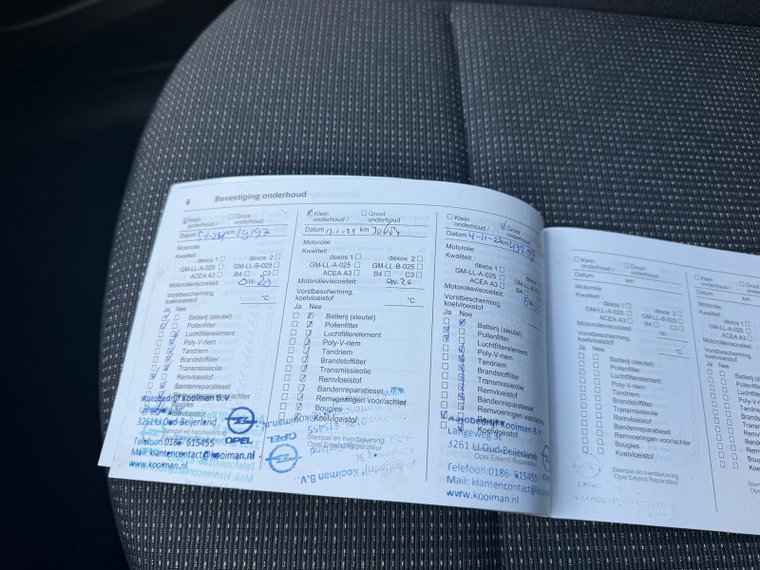 6 Bevestiging onderhoud
Klein onderhoud / Groot onderhoud
Datum 5-1-24 km 19197
Motorolie
Kwaliteit
dexos 1 dexos 2
GM-LL-A-025 GM-LL-B-025
ACEA A3 B4 C3
Motorolieviscositeit: 0W-20
Vorstbescherming, koelvloeistof °C
Ja Nee
Batterij (sleutel)
Pollenfilter
Luchtfilterelement
Poly-V-riem
Tandriem
Brandstoffilter
Transmissieolie
Remvloeistof
Bandenreparatieset
Autobedrijf Kooiman B.V.
Bougies
Langeweg 3c
Koelvloeistof
3261 LJ Oud-Beijerland
Stempel en handtekening
OPEL
Telefoon: 0186-615455
Mail: klantencontact@kooiman.nl
www.kooiman.nl
Klein onderhoud / Groot onderhoud
Datum km 30684
Motorolie
Kwaliteit
dexos 1 dexos 2
GM-LL-A-025 GM-LL-B-025
ACEA A3 B4 C3
Motorolieviscositeit: 0W-20
Vorstbescherming, koelvloeistof °C
Ja Nee
Batterij (sleutel)
Pollenfilter
Luchtfilterelement
Poly-V-riem
Tandriem
Brandstoffilter
Transmissieolie
Remvloeistof
Bandenreparatieset
Remvoeringen voor/achter
Bougies
Koelvloeistof
Stempel en handtekening
Opel Erkend Reparateur
OPEL
Kooiman B.V.
Klein onderhoud / Groot onderhoud
Datum 4-11-25 km
Motorolie
Kwaliteit
dexos 1
GM-LL-A-025
ACEA A3 B4
Motorolieviscositeit:
Vorstbescherming, koelvloeistof
Ja Nee
Batterij (sleutel)
Pollenfilter
Luchtfilterelement
Poly-V-riem
Tandriem
Brandstoffilter
Transmissieolie
Remvloeistof
Bandenreparatieset
Remvoeringen voor/achter
Autobedrijf Kooiman B.V.
Langeweg 3c
Koelvloeistof
3261 LJ Oud-Beijerland
Stempel en handtekening
Opel Erkend Reparateur
Telefoon: 0186-615455
Mail: klantencontact@
www.kooiman.nl
Klein onderhoud / Groot onderhoud
Datum km
Motorolie
Kwaliteit
dexos 1 dexos 2
GM-LL-A-025 GM-LL-B-025
ACEA A3 B4 C3
Motorolieviscositeit: W-
Vorstbescherming, koelvloeistof °C
Ja Nee
Batterij (sleutel)
Pollenfilter
Luchtfilterelement
Poly-V-riem
Tandriem
Brandstoffilter
Transmissieolie
Remvloeistof
Bandenreparatieset
Remvoeringen voor/achter
Bougies
Koelvloeistof
Stempel en handtekening
Opel Erkend Reparateur
Klein onderhoud /
Datum
Motorolie
Kwaliteit
dexos 1
GM-LL-A-025
ACEA A3
Motorolieviscositeit
Vorstbescherming, koelvloeistof
Ja Nee
Batterij
Pollenfilter
Luchtfilter
Poly-V-
Tandriem